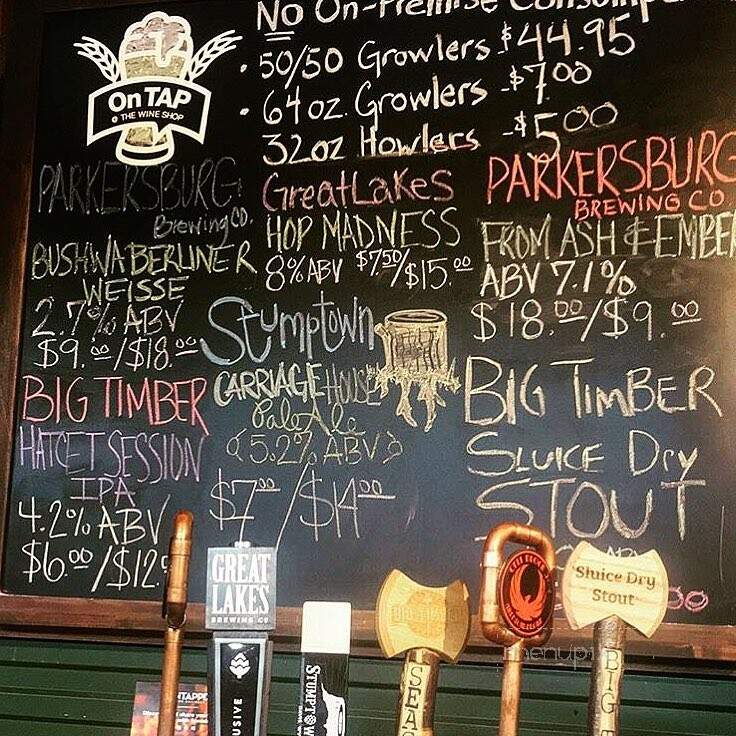 No On-Premise
• 50/50 Growlers $44.95
• 64 oz. Growlers - $7.00
32oz Howlers - $5.00
On TAP
@ THE WINE SHOP
PARKERSBURG
Brewing Co.
BUSHWA BERLINER
WEISSE
2.7% ABV
$9.00/$18.00
BIG TIMBER
HATCET SESSION
IPA
4.2% ABV
$6.00/$12.
Great Lakes
HOP MADNESS
8% ABV $7.50/$15.00
Stumptown
CARRIAGE HOUSE
Pale Ale
(5.2% ABV)
$7.00/$14.00
PARKERSBURG
BREWING CO
FROM ASH & EMBE
ABV 7.1%
$18.00/$9.00
BIG TIMBER
SLUICE Dry
STOUT
GREAT
LAKES
BREWING CO
USIVE
STUMPTOW
SEA
Sluice Dry
Stout
BIG T
NTAPP
menupi